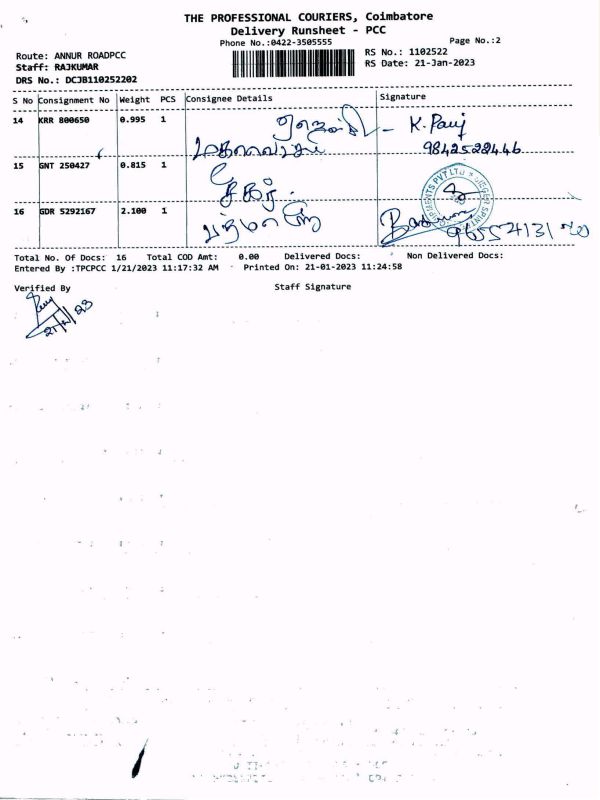 THE PROFESSIONAL COURIERS, Coimbatore
Delivery Runsheet - PCC
Phone No.:0422-3505555
Page No.:2
Route: ANNUR ROADPCC
RS No.: 1102522
Staff: RAJKUMAR
RS Date: 21-Jan-2023
DRS No.: DCJB110252202
S No Consignment No Weight PCS Consignee Details Signature
14 KRR 800650 0.995 1
9842528446
15 GNT 250427 0.815 1
16 GDR 5292167 2.100 1
Total No. Of Docs: 16 Total COD Amt: 0.00 Delivered Docs: Non Delivered Docs:
Entered By :TPCPCC 1/21/2023 11:17:32 AM Printed On: 21-01-2023 11:24:58
Verified By Staff Signature